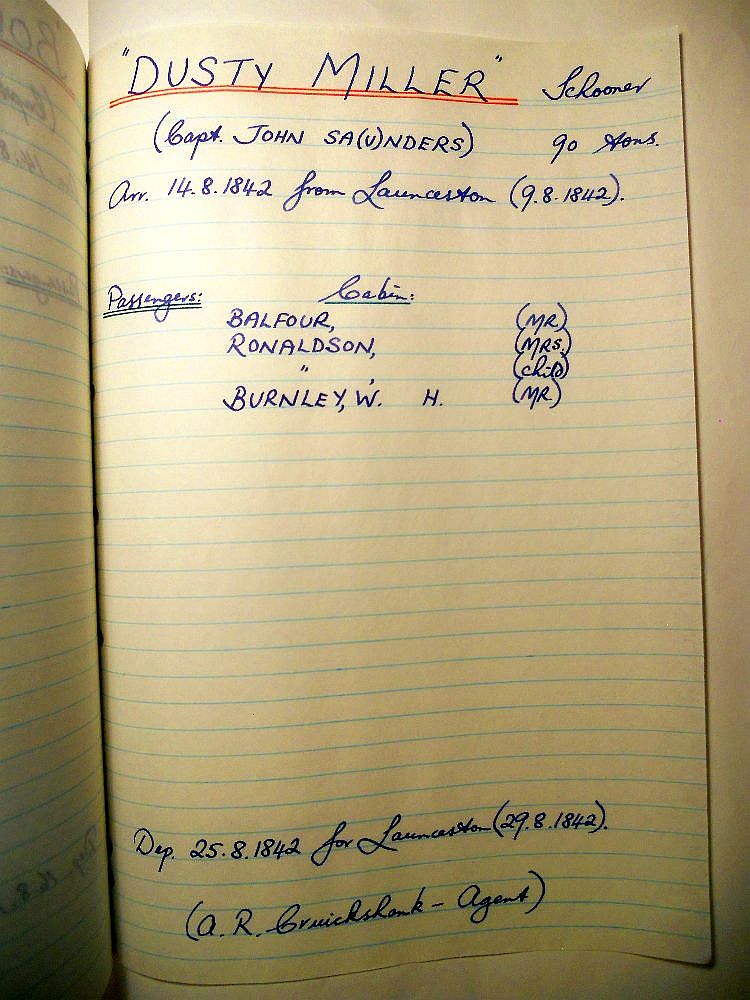 "DUSTY MILLER" Schooner
(Capt. JOHN SA(U)NDERS) 90 tons.
Arr. 14.8.1842 from Launceston (9.8.1842).
Passengers: Cabin:
BALFOUR, (MR)
RONALDSON, (MRS.)
" , (child)
BURNLEY, W. H. (MR)
Dep. 25.8.1842 for Launceston (29.8.1842).
(A. R. Cruickshank - Agent)